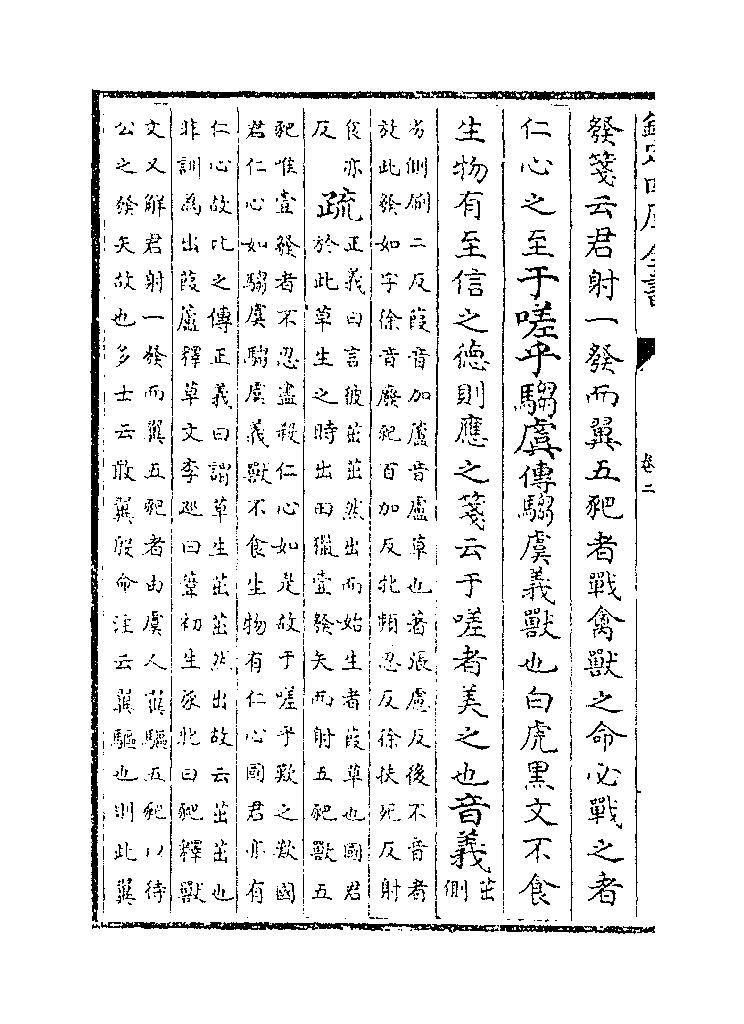 欽定四庫全書
卷二
發箋云君射一發而翼五豝者戰禽獸之命必戰之者
仁心之至于嗟乎騶虞傳騶虞義獸也白虎黑文不食
生物有至信之德則應之箋云于嗟者美之也音義茁側
劣側刷二反葭音加蘆音盧草也著張慮反後不音者
放此發如字徐音廢豝百加反牝頻忍反徐扶死反射
食亦
反
疏正義曰言彼茁茁然出而始生者葭草也國君
於此草生之時出田獵壹發矢而射五豝獸五
豝唯壹發者不忍盡殺仁心如是故于嗟乎歎之歎國
君仁心如騶虞騶虞義獸不食生物有仁心國君亦有
仁心故比之傳正義曰謂草生茁茁然出故云茁茁也
非訓為出葭蘆釋草文李巡曰葦初生豕牝曰豝釋獸
文又解君射一發而翼五豝者由虞人翼驅五豝以待
公之發矢故也多士云敢翼殷命注云翼驅也則此翼